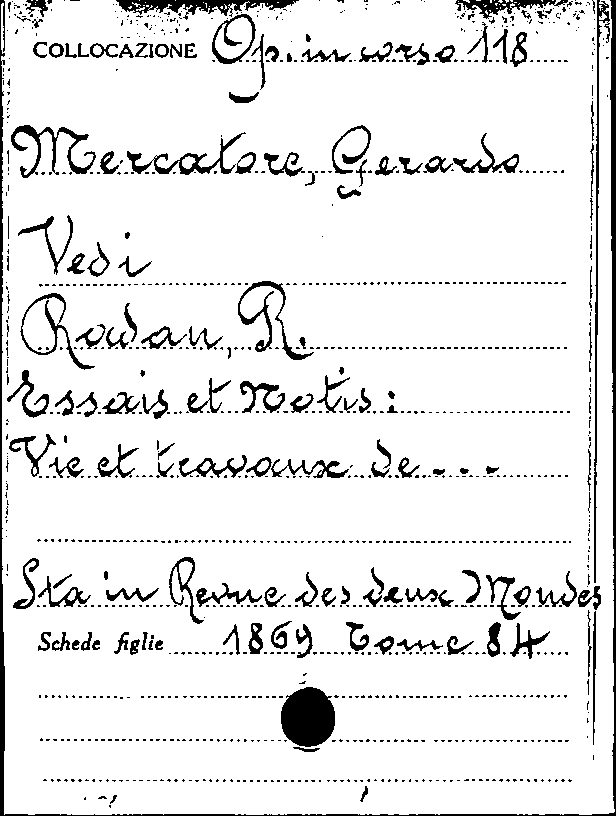 COLLOCAZIONE Op. in corso 118
Mercatore, Gerardo
Vedi
Radau, R.
Essais et Notis :
Vie et travaux de . . .
Sta in Revue des deux Mondes
Schede figlie 1869 Tome 84